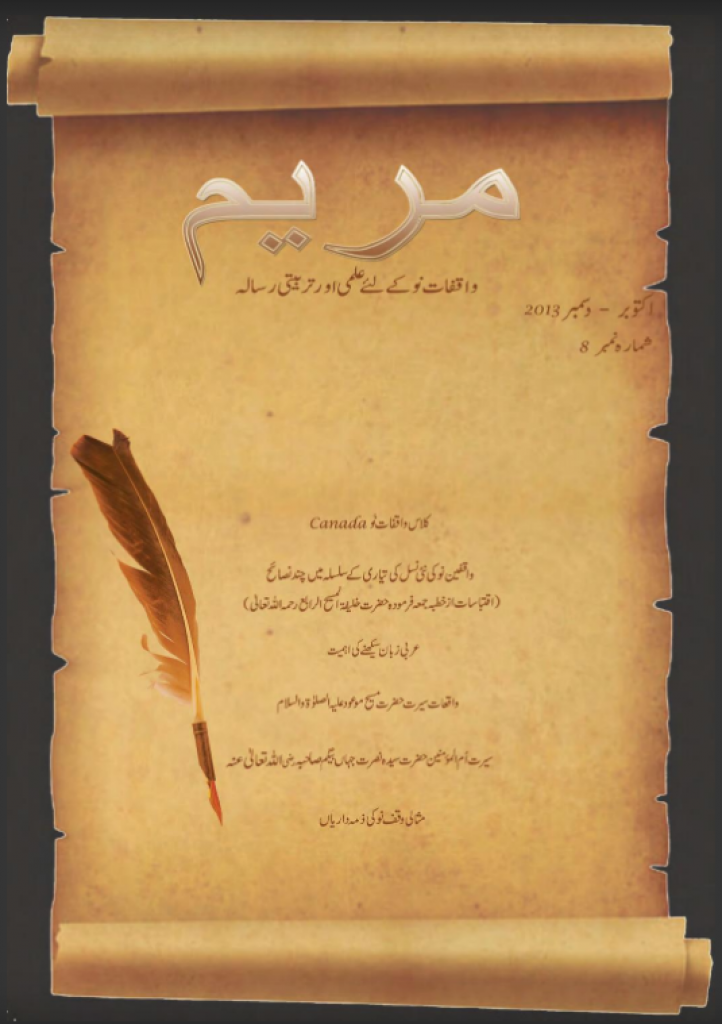 مریم
واقفات نو کے لئے علمی اور تربیتی رسالہ
اکتوبر – دسمبر 2013
شمارہ نمبر 8
کلاس واقفات نو Canada
واقفین نو کی نئی نسل کی تیاری کے سلسلہ میں چند نصائح
(اقتباسات از خطبہ جمعہ فرمودہ حضرت خلیفۃ المسیح الرابع رحمہ اللہ تعالیٰ)
عربی زبان سیکھنے کی اہمیت
واقعات سیرت حضرت مسیح موعود علیہ الصلوٰۃ والسلام
سیرت اُم المؤمنین حضرت سیدہ نصرت جہاں بیگم صاحبہ رضی اللہ تعالیٰ عنہ
مثالی وقف نو کی ذمہ داریاں